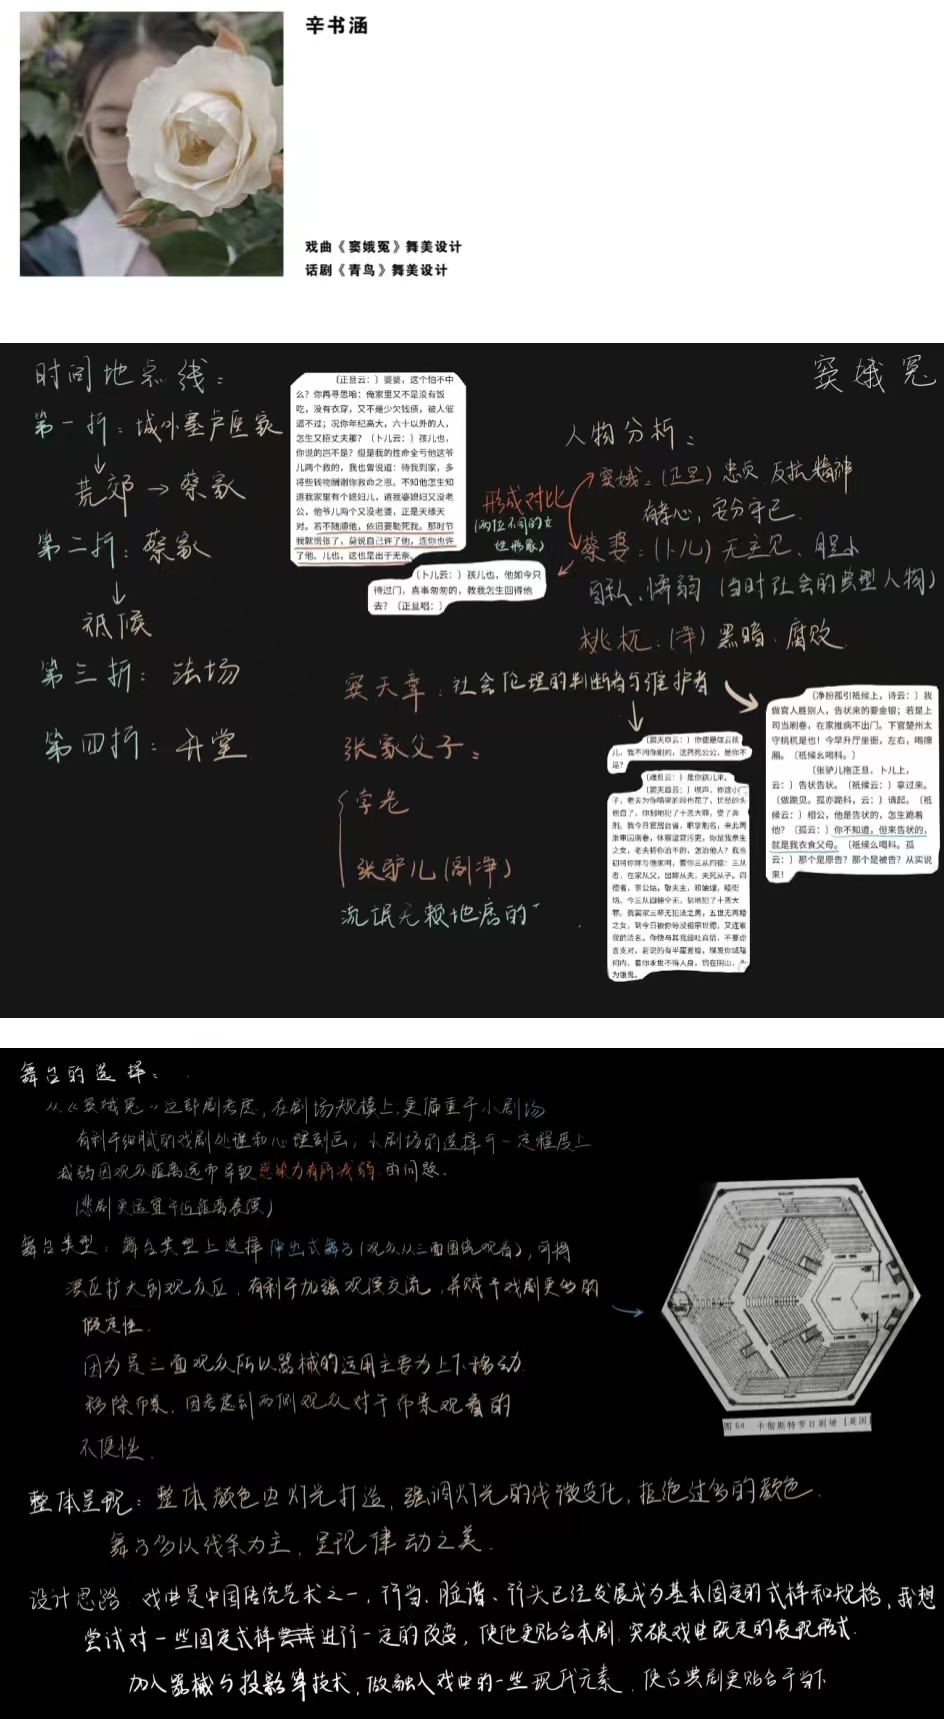 辛书涵
戏曲《窦娥冤》舞美设计
话剧《青鸟》舞美设计
窦娥冤
时间地点线：
第一折：城外赛卢医家
荒郊→蔡家
第二折：蔡家
祗候
第三折：法场
第四折：升堂
〔正旦云：〕婆婆，这个怕不中
么？你再寻思咱：俺家里又不是没有饭
吃，没有衣穿，又不是少欠钱债，被人催
逼不过；况你年纪高大，六十以外的人，
怎生又招丈夫那？〔卜儿云：〕孩儿也，
你说的岂不是？但是我的性命全亏他这爷
儿两个救的，我也曾说道：待我到家，多
将些钱物酬谢你救命之恩。不知他怎生知
道我家里有个媳妇儿，道我婆媳妇又没老
公，他爷儿两个又没老婆，正是天缘天
对。若不随顺他，依旧要勒死我。那时节
我就慌张了，莫说自己许了他，连你也许
了他。儿也，这也是出于无奈。
〔卜儿云：〕孩儿也，他如今只
待过门，喜事匆匆的，教我怎生回得他
去？〔正旦唱：〕
形成对比
(两位不同的女
性形象)
人物分析：
窦娥：(正旦) 忠贞，反抗精神
有孝心，安分守己.
蔡婆：(卜儿) 无主见、胆小
自私、懦弱 (当时社会的典型人物)
桃杌：(净) 黑暗、腐败
窦天章：社会伦理的判断者与维护者
张家父子：
孛老
张驴儿(副净)
流氓无赖地痞的
〔窦天章云：〕你便是端云孩
儿，我不问你别的，这药死公公，是你不
是？
〔魂旦云：〕是你孩儿来。
〔净扮孤引祗候上，诗云：〕我
做官人胜别人，告状来的要金银；若是上
司当刷卷，在家推病不出门。下官楚州太
守桃杌是也！今早升厅坐衙，左右，喝撺
厢。〔祗候幺喝科。〕
〔张驴儿拖正旦、卜儿上，
云：〕告状告状。〔祗候云：〕拿过来。
〔做跪见。孤亦跪科，云：〕请起。〔祗
候云：〕相公，他是告状的，怎生跪着
他？〔孤云：〕你不知道，但来告状的，
就是我衣食父母。〔祗候幺喝科。孤
云：〕那个是原告？那个是被告？从实说
来！
舞台的选择：
从《窦娥冤》这部剧考虑，在剧场规模上，更偏重于小剧场
有利于细腻的戏剧处理和心理刻画，小剧场的选择可一定程度上
减弱因观众距离远而导致感染力有所减弱的问题.
(悲剧更适宜于近距离表演)
舞台类型：舞台类型上选择伸出式舞台(观众从三面围绕观看)，可将
演区扩大到观众区，有利于加强观演交流，并赋予戏剧更多的
假定性.
因为是三面观众所以器械的运用主要为上下移动
移除布景，因考虑到两侧观众对于布景观看的
不便性.
图64 卡彻斯特节日剧场［英国］
整体呈现：整体颜色由灯光打造，强调灯光的细微变化，拒绝过多的颜色.
舞台多以线条为主，呈现律动之美.
设计思路：戏曲是中国传统艺术之一，行当、脸谱、行头已经发展成为基本固定的式样和规格，我想
尝试对一些固定式样进行一定的改变，使他更贴合本剧，突破戏曲既定的表现形式.
加入器械与投影等技术，做融入戏曲的一些现代元素，使古典剧更贴合于当下